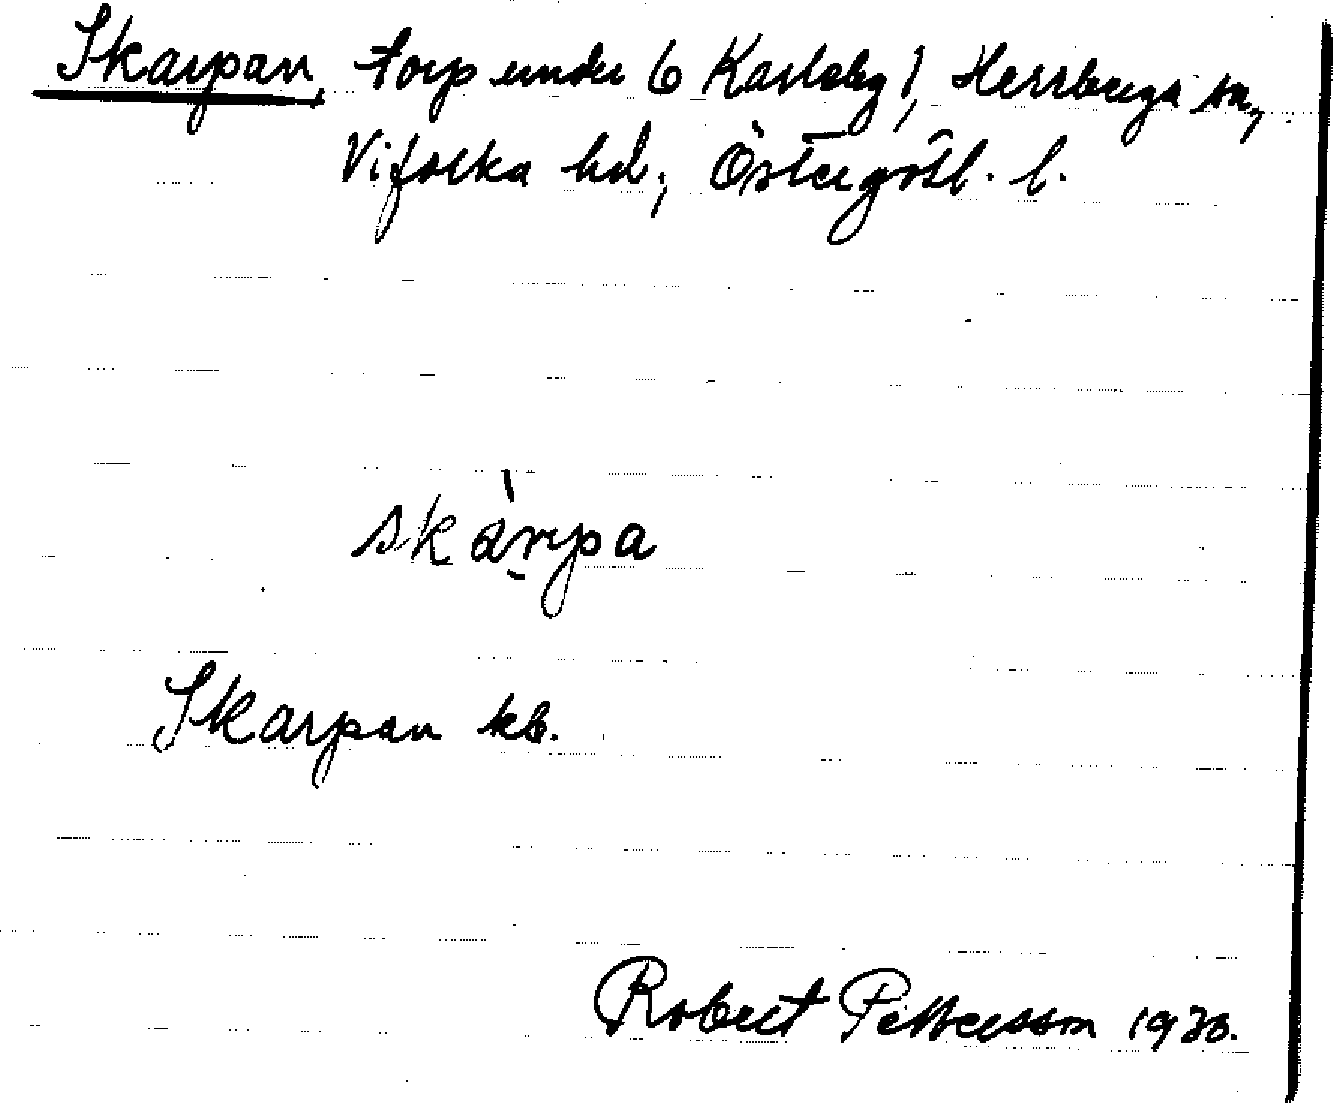 Skarpan, torp under 6 Karleby 1, Herrberga sn,
Vifolka hd, Östergötl. l.
skàrpa
Skarpan kb.
Robert Pettersson